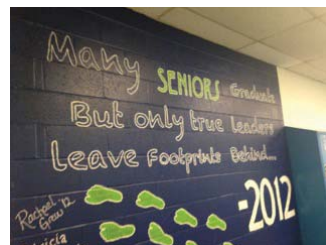 Many SENIORS Graduate
But only true Leaders
Leave Footprints Behind...
-2012
Rachael